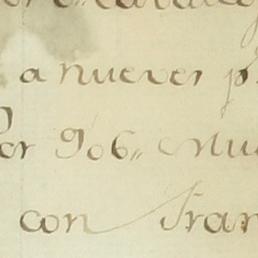 a nueves p
Por 906,, Mu
con Fran